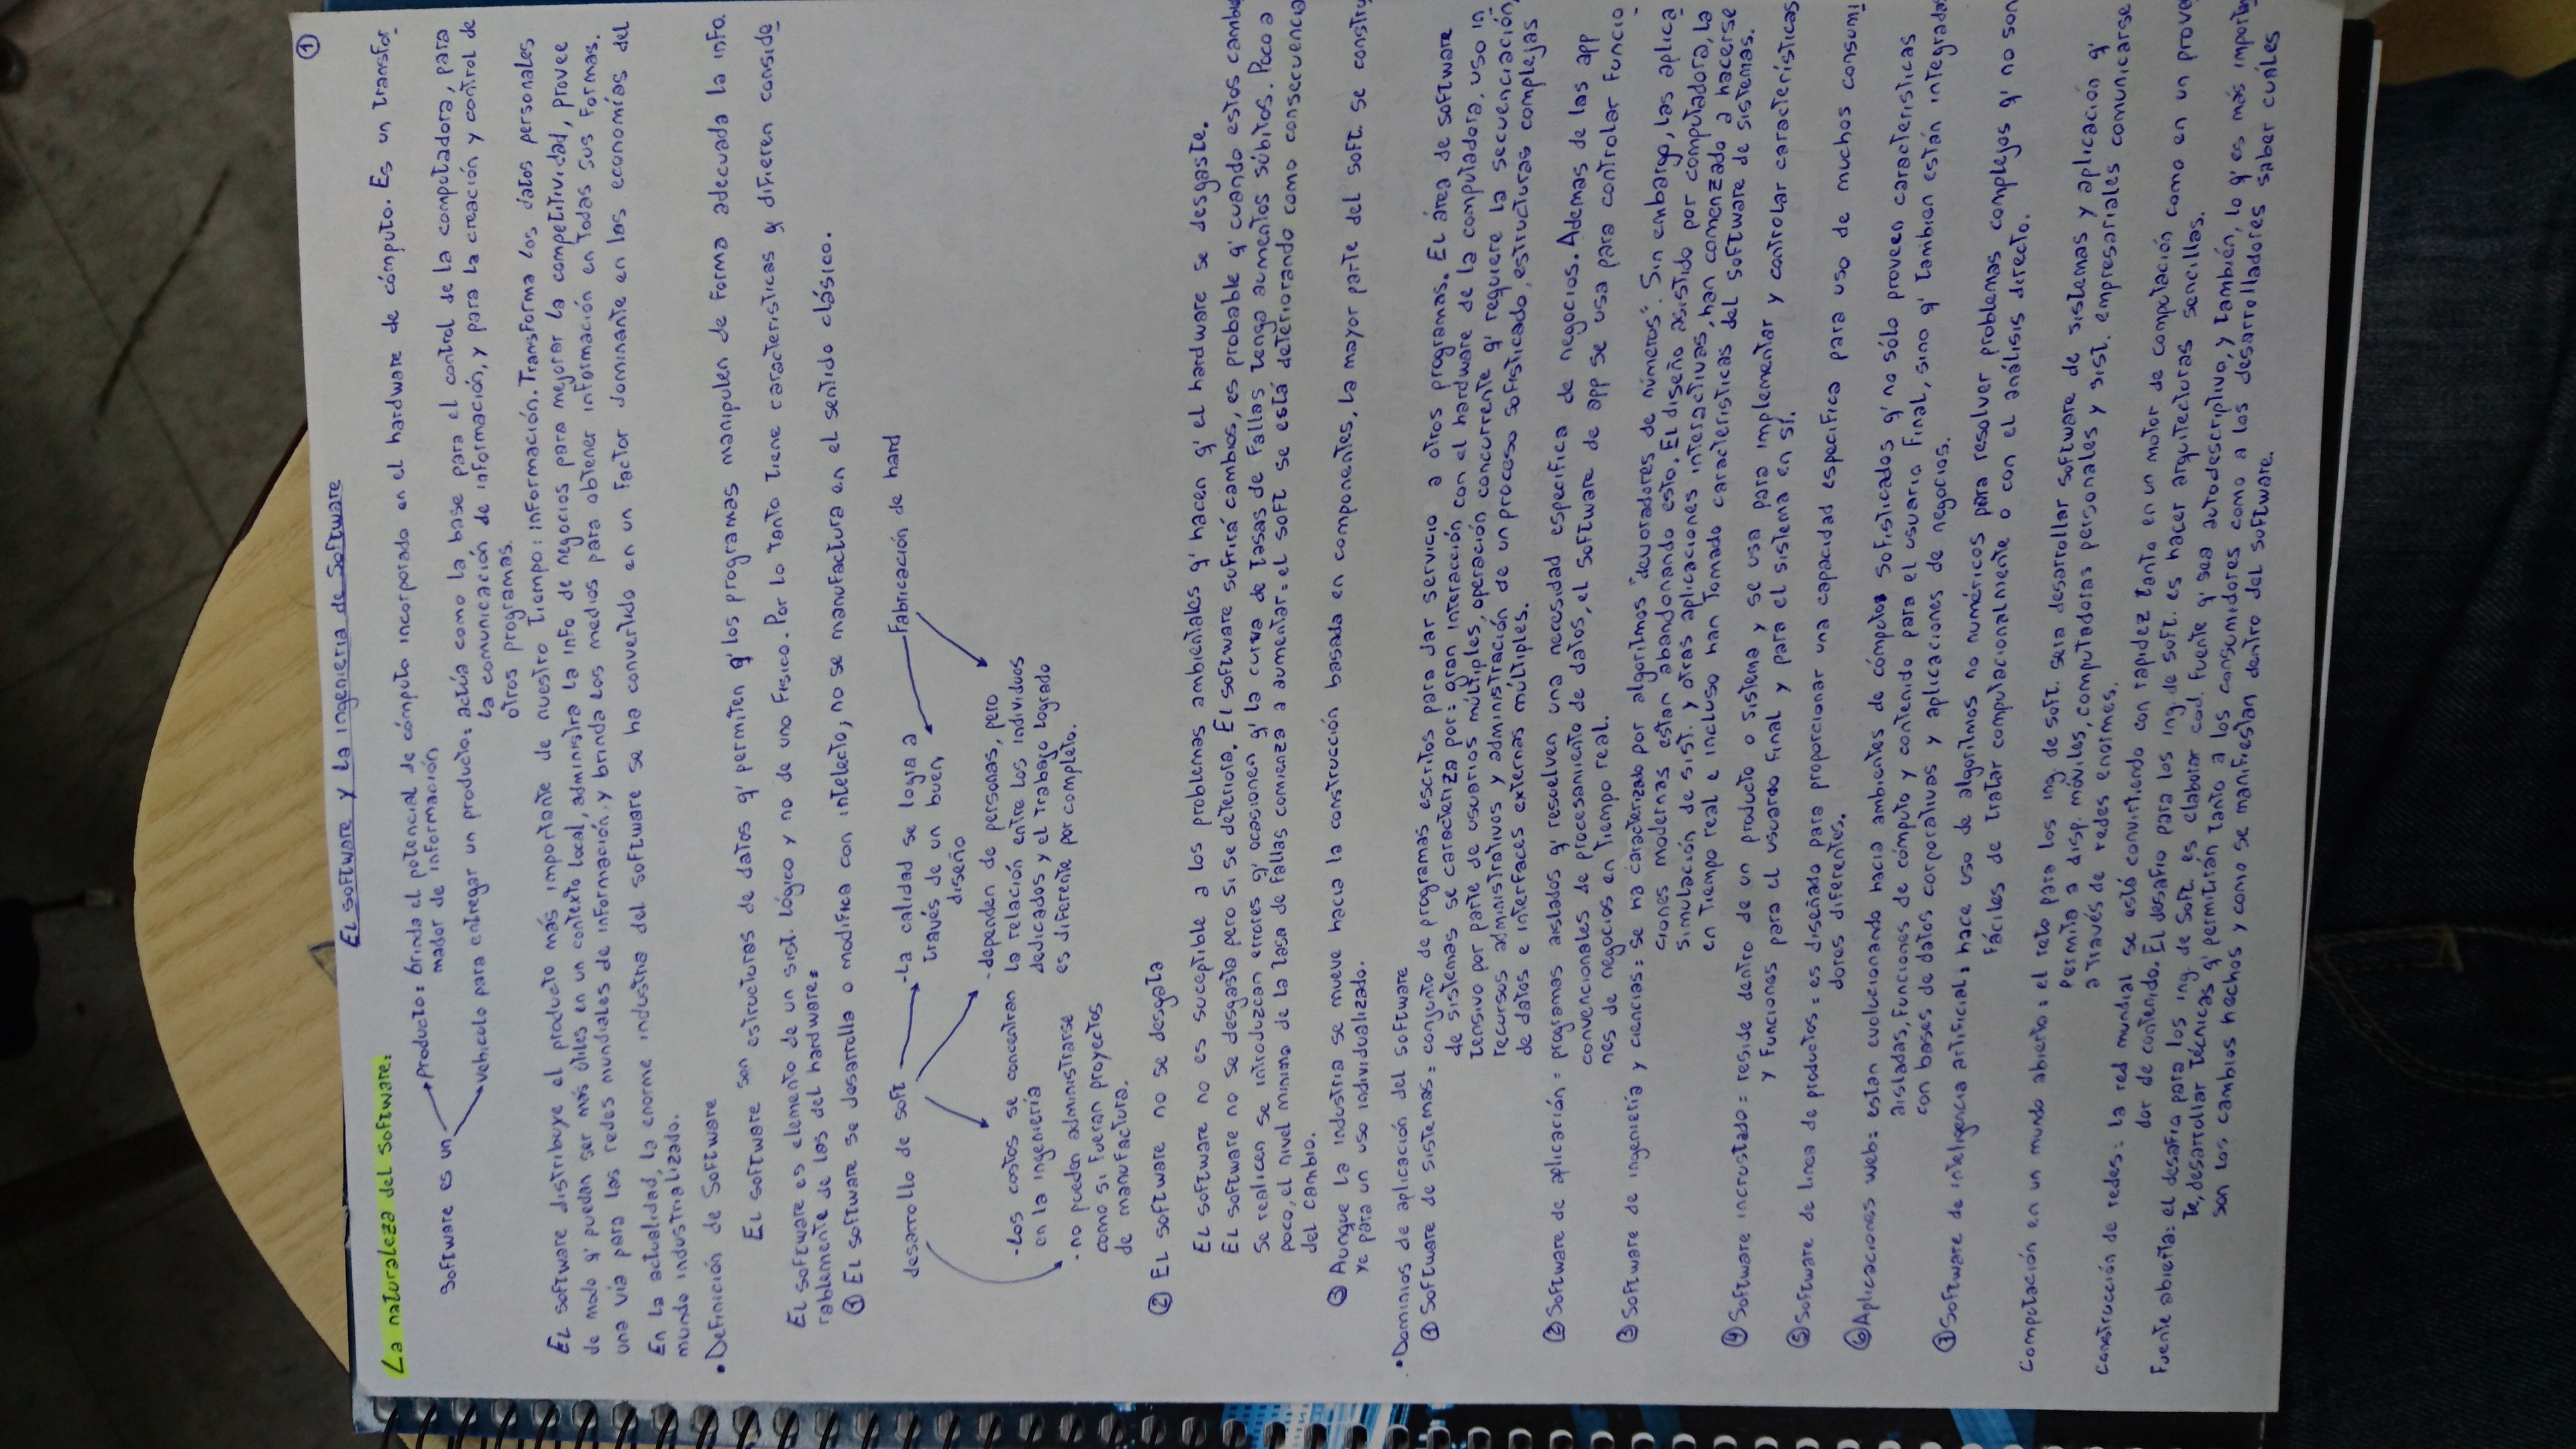 ①
El software y la ingenieria de Software
La naturaleza del software:
Software es un
Producto: brinda el potencial de cómputo incorporado en el hardware de cómputo. Es un transfor
mador de información
vehiculo para entregar un producto: actúa como la base para el control de la computadora, para
la comunicación de información, y para la creación y control de
otros programas.
El software distribuye el producto más importante de nuestro tiempo: información. Transforma los datos personales
de modo q' puedan ser más útiles en un contexto local, administra la info de negocios para mejorar la competitividad, provee
una via para las redes mundiales de información, y brinda los medios para obtener información en todas sus formas.
En la actualidad, la enorme industria del software se ha convertido en un factor dominante en las economías del
mundo industrializado.
• Definición de Software
El software son estructuras de datos q' permiten q' los programas manipulen de forma adecuada la info.
El software es elemento de un sist. lógico y no de uno físico. Por lo tanto tiene caracteristicas q difieren conside
rablemente de las del hardware:
① El software se desarrolla o modifica con intelecto; no se manufactura en el sentido clásico.
desarrollo de soft
Fabricación de hard
-La calidad se logra a
través de un buen
diseño
-dependen de personas, pero
la relación entre los individuos
dedicados y el trabajo logrado
es diferente por completo.
-Los costos se concentran
en la ingeniería
-no pueden administrarse
como si fueran proyectos
de manufactura.
② El software no se desgata
El software no es suceptible a los problemas ambientales q' hacen q' el hardware se desgaste.
El software no se desgasta pero si se deteriora. El software sufrirá cambios, es probable q' cuando estos cambio
se realicen se introduzcan errores q' ocasionen q' la curva de tasas de fallas tenga aumentos súbitos. Poco a
poco, el nivel minimo de la tasa de fallas comienza a aumentar: el soft se está deteriorando como consecuencia
del cambio.
③ Aunque la industria se mueve hacia la construcción basada en componentes, la mayor parte del soft. se constru
ye para un uso individualizado.
• Dominios de aplicación del software
① Software de sistemas: conjunto de programas escritos para dar servicio a otros programas. El área de software
de sistemas se caracteriza por: gran interacción con el hardware de la computadora, uso in
tensivo por parte de usuarios múltiples, operación concurrente q' requiere la secuenciación,
recursos administrativos y administración de un proceso sofisticado, estructuras complejas
de datos e interfaces externas múltiples.
② Software de aplicación: programas aislados q' resuelven una necesidad especifica de negocios. Ademas de las app
convencionales de procesamiento de datos, el software de app se usa para controlar funcio
nes de negocios en tiempo real.
③ Software de ingeniería y ciencias: se ha caracterizado por algoritmos "devoradores de números". Sin embargo, las aplica
ciones modernas estan abandonando esto. El diseño asistido por computadora, la
simulación de sist. y otras aplicaciones interactivas, han comenzado a hacerse
en tiempo real e incluso han tomado caracteristicas del software de sistemas.
④ Software incrustado: reside dentro de un producto o sistema y se usa para implementar y controlar características
y funciones para el usuario final y para el sistema en sí.
⑤ Software de linea de productos: es diseñado para proporcionar una capacidad especifica para uso de muchos consumi
dores diferentes.
⑥ Aplicaciones web: estan evolucionando hacia ambientes de cómputo sofisticados q' no sólo proveen caracteristicas
aisladas, funciones de cómputo y contenido para el usuario final, sino q' tambien están integradas
con bases de datos corporativas y aplicaciones de negocios.
⑦ Software de inteligencia artificial: hace uso de algoritmos no numéricos para resolver problemas complejos q' no son
fáciles de tratar computacionalmente o con el análisis directo.
Computación en un mundo abierto: el reto para los ing. de soft. sera desarrollar software de sistemas y aplicación q'
permita a disp. móviles, computadoras personales y sist. empresariales comunicarse
a través de redes enormes.
Construcción de redes: la red mundial se está convirtiendo con rapidez tanto en un motor de computación como en un provee
dor de contenido. El desafio para los ing. de soft. es hacer arquitecturas sencillas.
Fuente abierta: el desafio para los ing. de soft. es elaborar cod. fuente q' sea autodescriptivo, y también, lo q' es más importan
te, desarrollar técnicas q' permitirán tanto a los consumidores como a los desarrolladores saber cuáles
son los cambios hechos y como se manifiestan dentro del software.